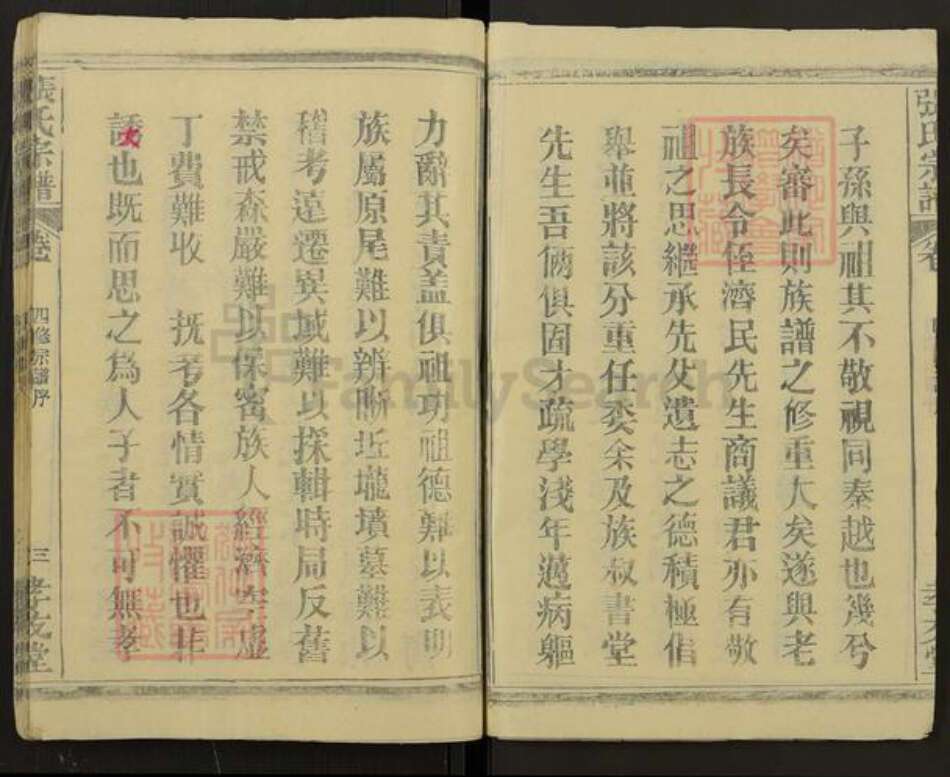 子孫與祖其不敬視同秦越也幾兮
矣審此則族譜之修重大矣遂與老
族長令侄濟民先生商議君亦有敬
祖之思繼承先父遺志之德積極倡
舉並將該分重任委余及族叔書堂
先生吾倆俱固才疏學淺年邁病軀
力辭其責盖俱祖功祖德難以表明
族屬原尾難以辨晰坵壠墳墓難以
稽考遠遷異域難以採輯時局反舊
禁戒森嚴難以保密族人經濟空虛
丁費難收 抚考各情實誠懼也非
誘也既而思之爲人子者不可無孝
張氏宗譜
卷
四修宗譜序
三
孝友堂
張氏宗譜
FamilySearch